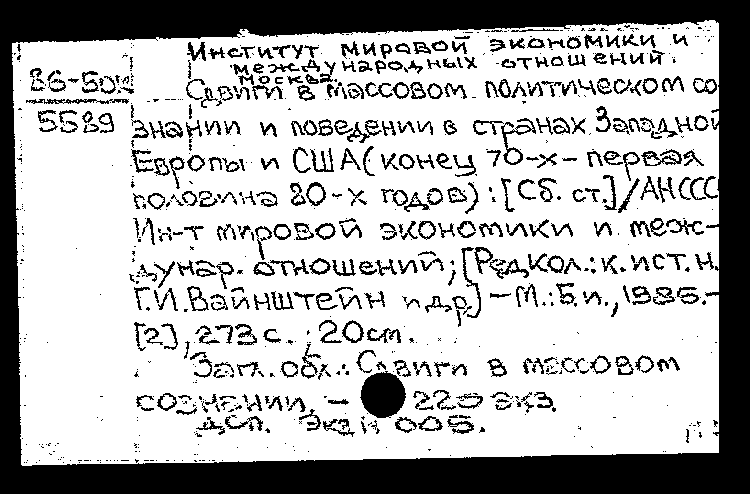 Институт мировой экономики и
международных отношений.
Москва.
86-50к
Сдвиги в массовом политическом со-
5589
знании и поведении в странах Западной
Европы и США (конец 70-х - первая
половина 80-х годов) : [Сб. ст.] / АН СССР
Ин-т мировой экономики и меж-
дунар. отношений; [Редкол.: к. ист. н.
Г.И. Вайнштейн и др.] - М.: Б.и., 1985.-
[2], 273 с. ; 20 см.
Загл. обл.: Сдвиги в массовом
сознании. - 220 экз.
ДСП. Экз N 005.